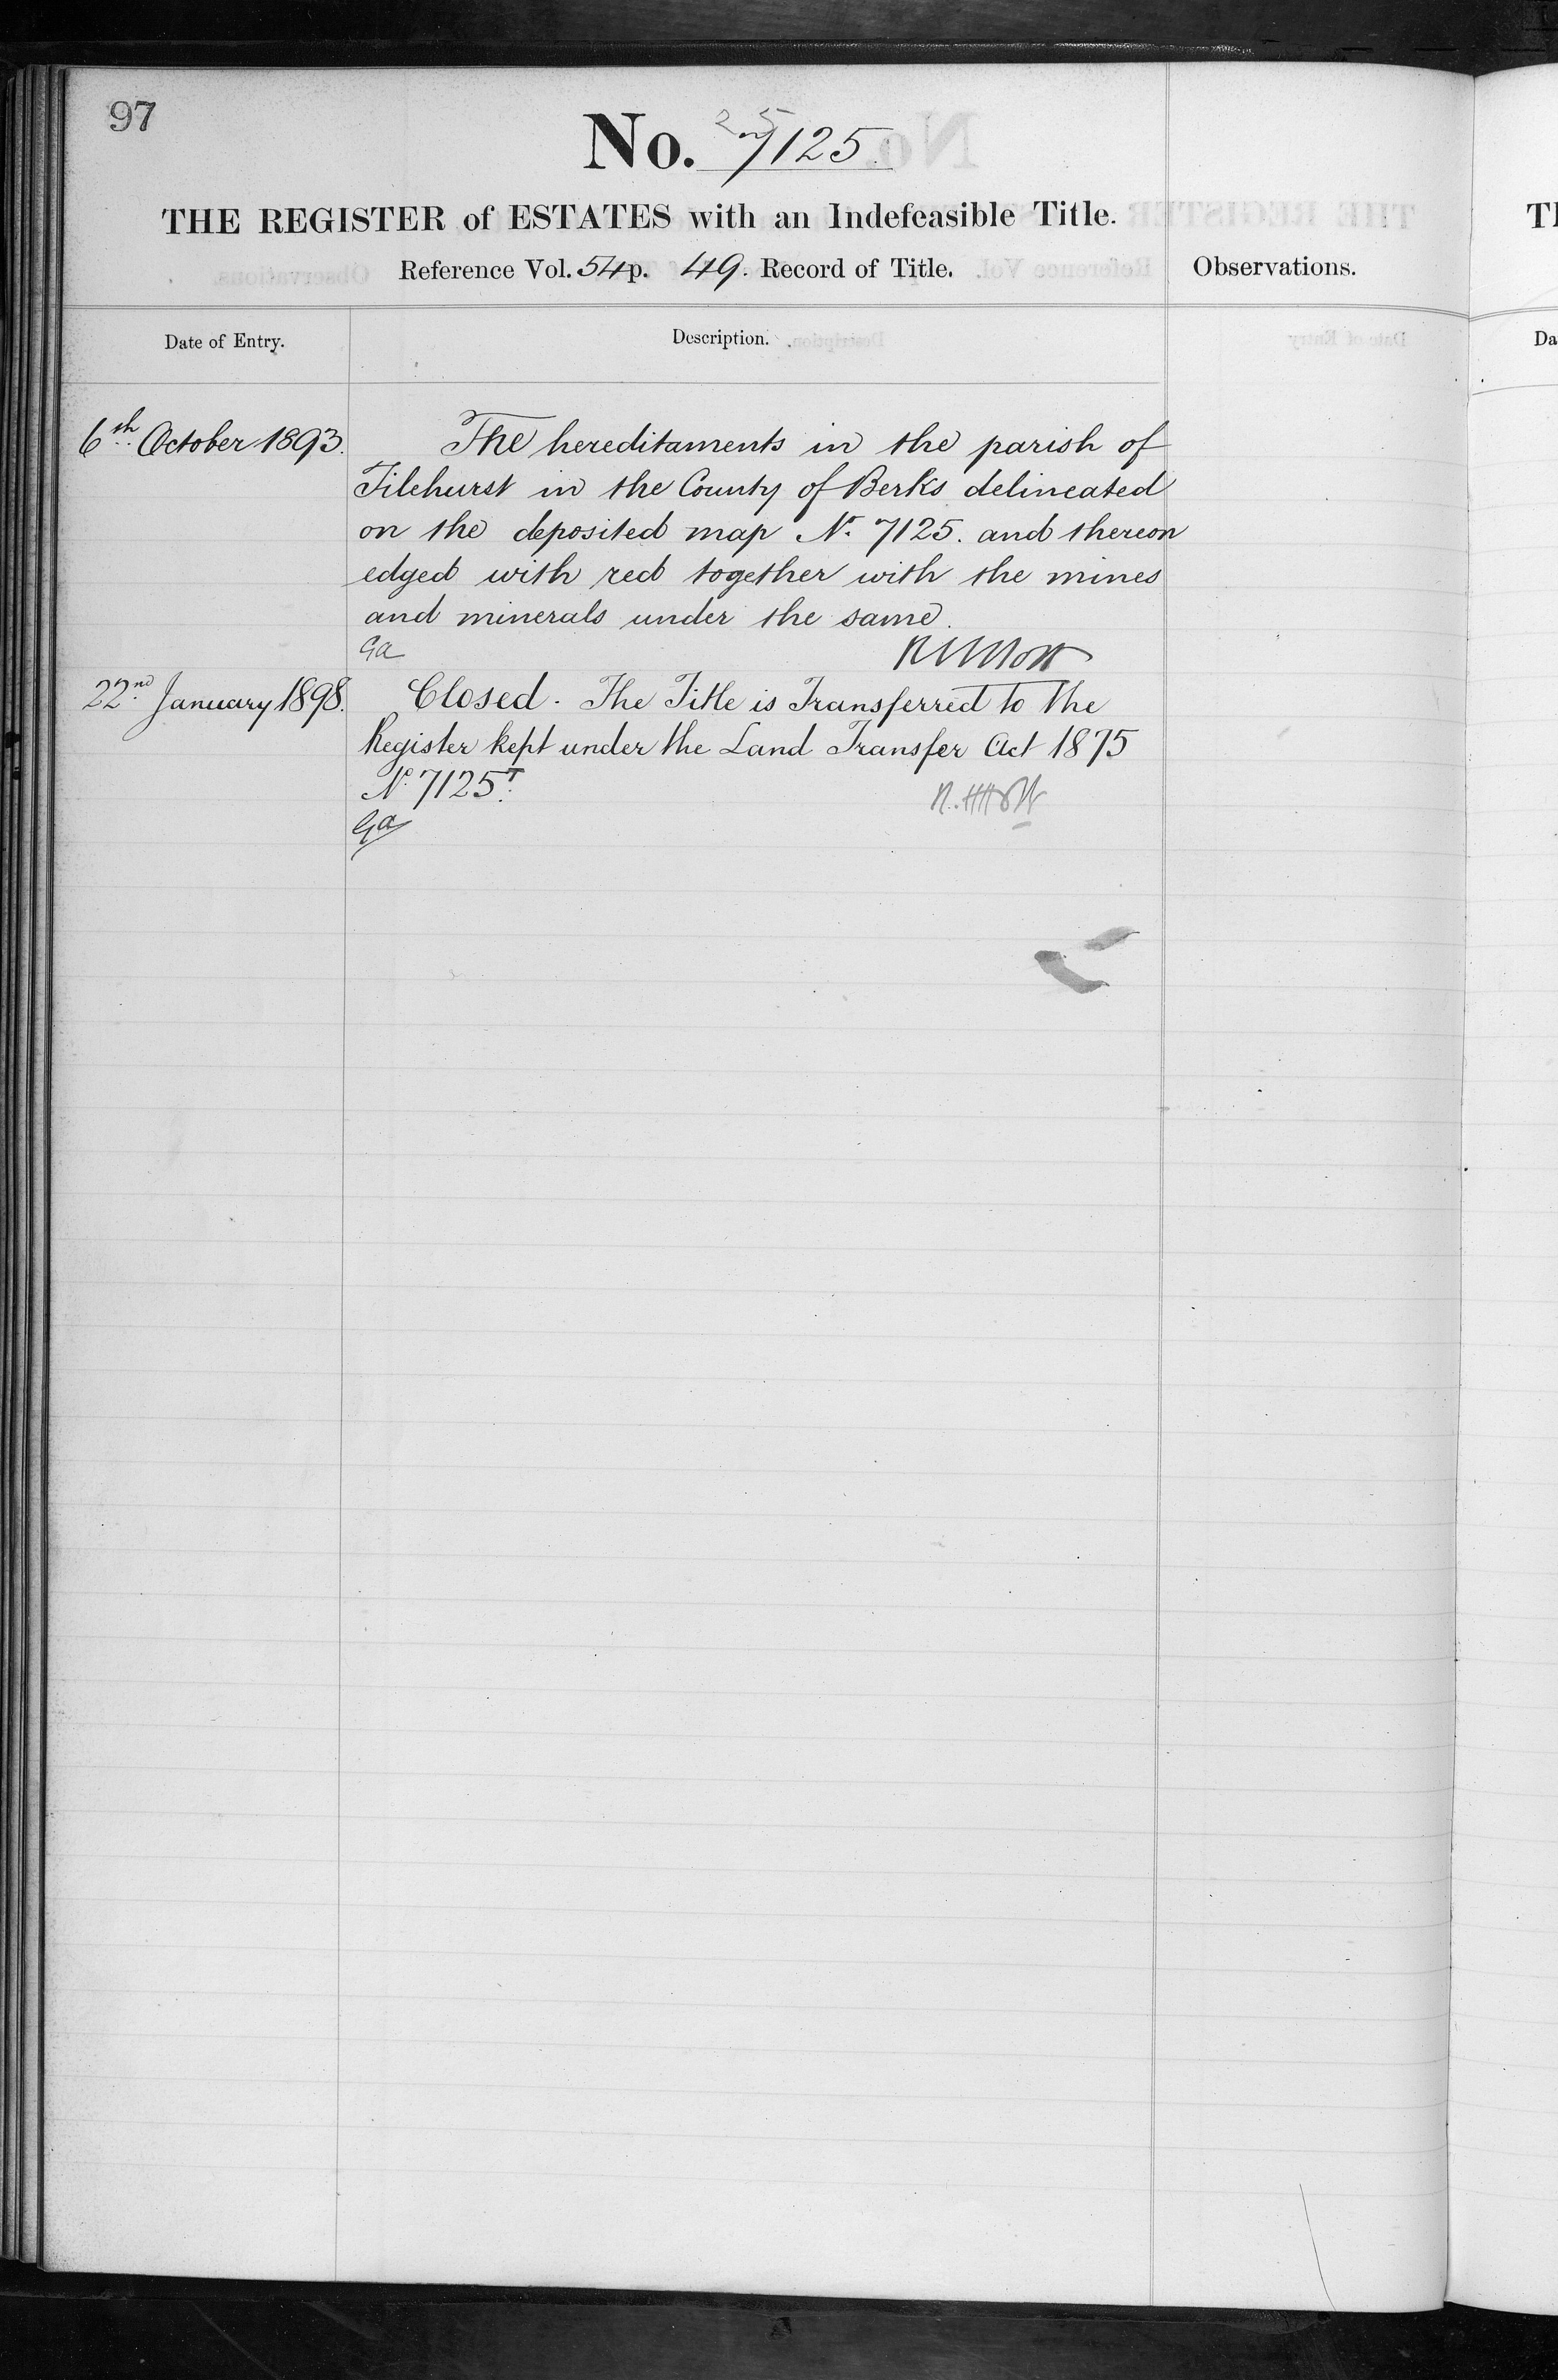 97
No. 7125.
25
THE REGISTER of ESTATES with an Indefeasible Title.
Reference Vol. 54 p. 49. Record of Title.
Observations.
Date of Entry.
Description.
6th October 1893.
The hereditaments in the parish of
Tilehurst in the County of Berks delineated
on the deposited map No. 7125. and thereon
edged with red together with the mines
and minerals under the same.
Ga
22nd January 1898.
Closed. The Title is Transferred to the
Register kept under the Land Transfer Act 1875
No 7125T.
Ga